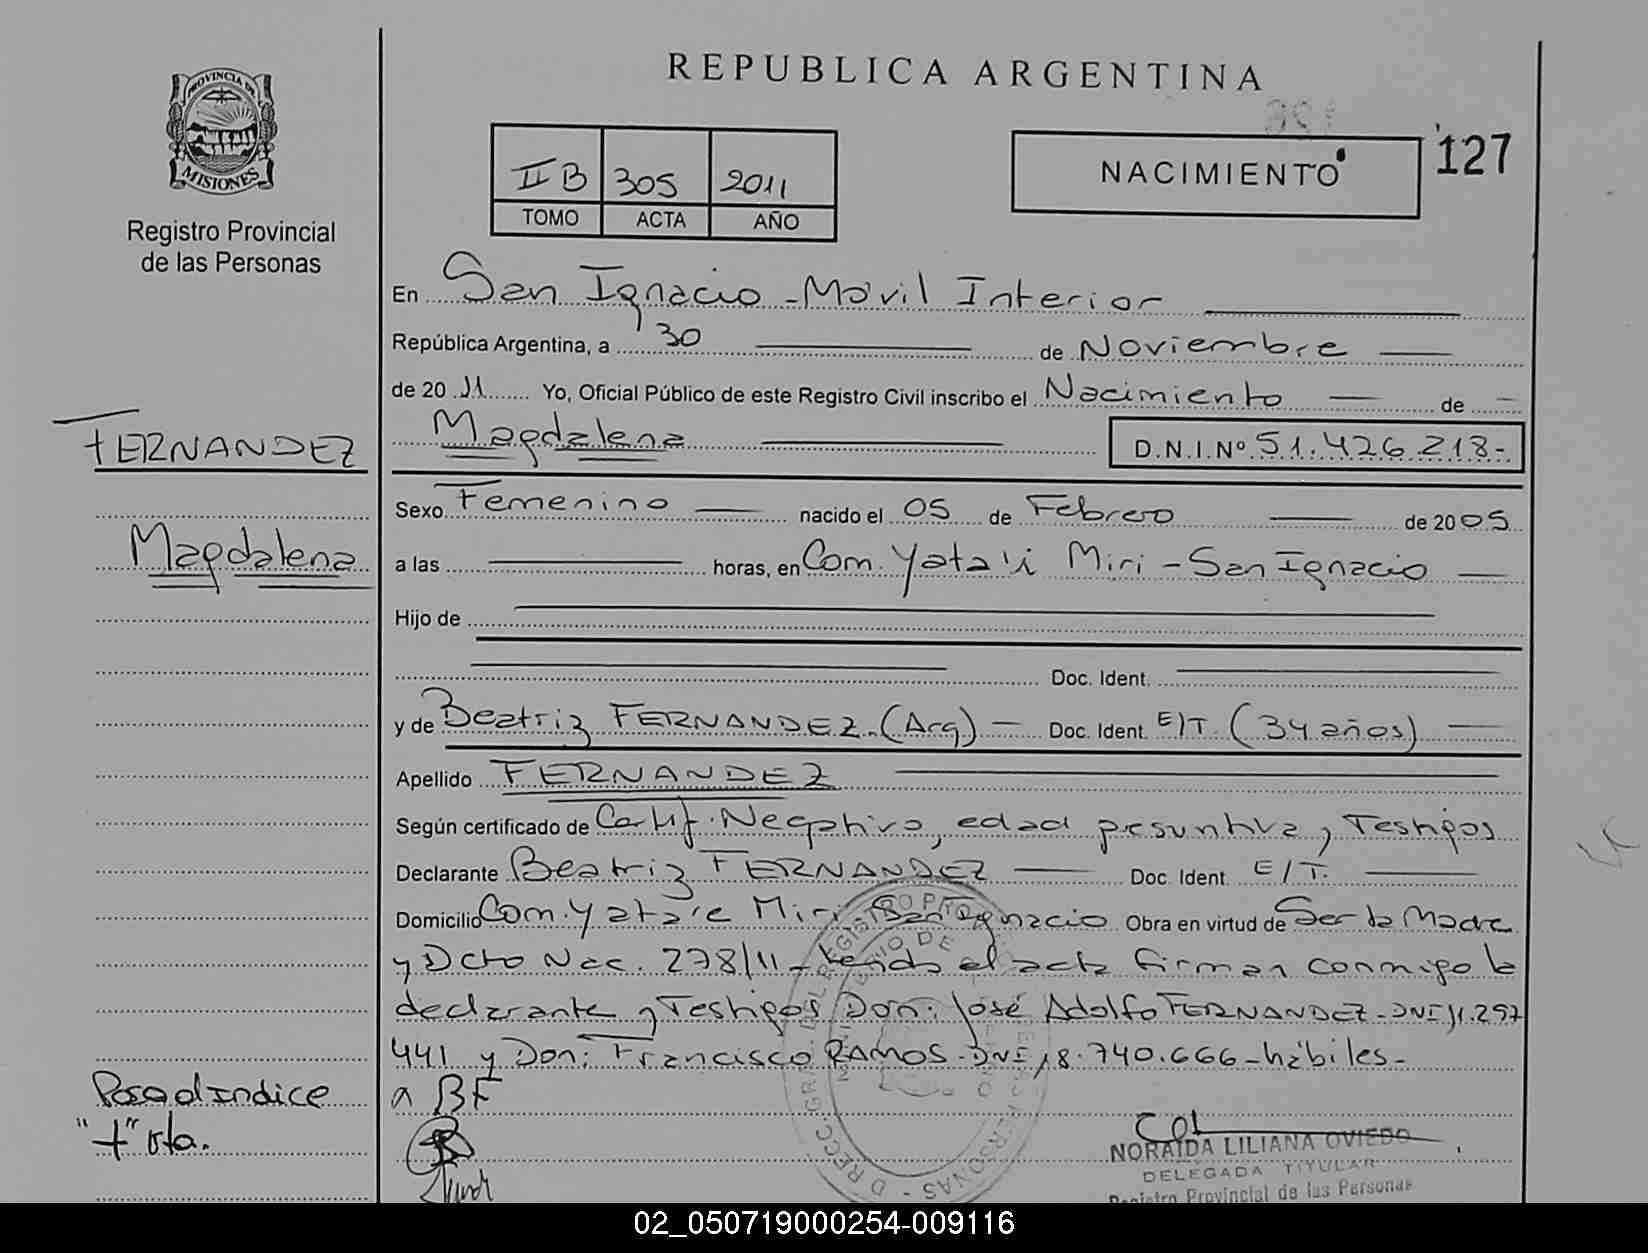 REPUBLICA ARGENTINA
PROVINCIA DE
MISIONES
Registro Provincial
de las Personas
II B 305 2011
TOMO ACTA AÑO
NACIMIENTO
127
En San Ignacio - Móvil Interior
República Argentina, a 30 de Noviembre
de 20 11 Yo, Oficial Público de este Registro Civil inscribo el Nacimiento de
Magdalena D.N.I.Nº 51.426.218-
FERNANDEZ
Magdalena
Sexo Femenino nacido el 05 de Febrero de 2005
a las horas, en Com. Yata'i Miri - San Ignacio
Hijo de
Doc. Ident.
y de Beatriz FERNANDEZ. (Arg) Doc. Ident. E/T. (34 años)
Apellido FERNANDEZ
Según certificado de Certif. Negativo, edad presuntiva y Testigos
Declarante Beatriz FERNANDEZ Doc. Ident. E/T.
Domicilio Com. Miri San Ignacio Obra en virtud de Ser la Madre
y Dcto Nac. 278/11 - leída el acta firman conmigo la
declarante y Testigos Don: José Adolfo FERNANDEZ - DNI 11.297
441 y Don: Francisco RAMOS - DNI 18.740.666 - hábiles -
a BF
Pasa al Indice
NORAIDA LILIANA OVIEDO
DELEGADA TITULAR
Registro Provincial de las Personas
02_050719000254-009116